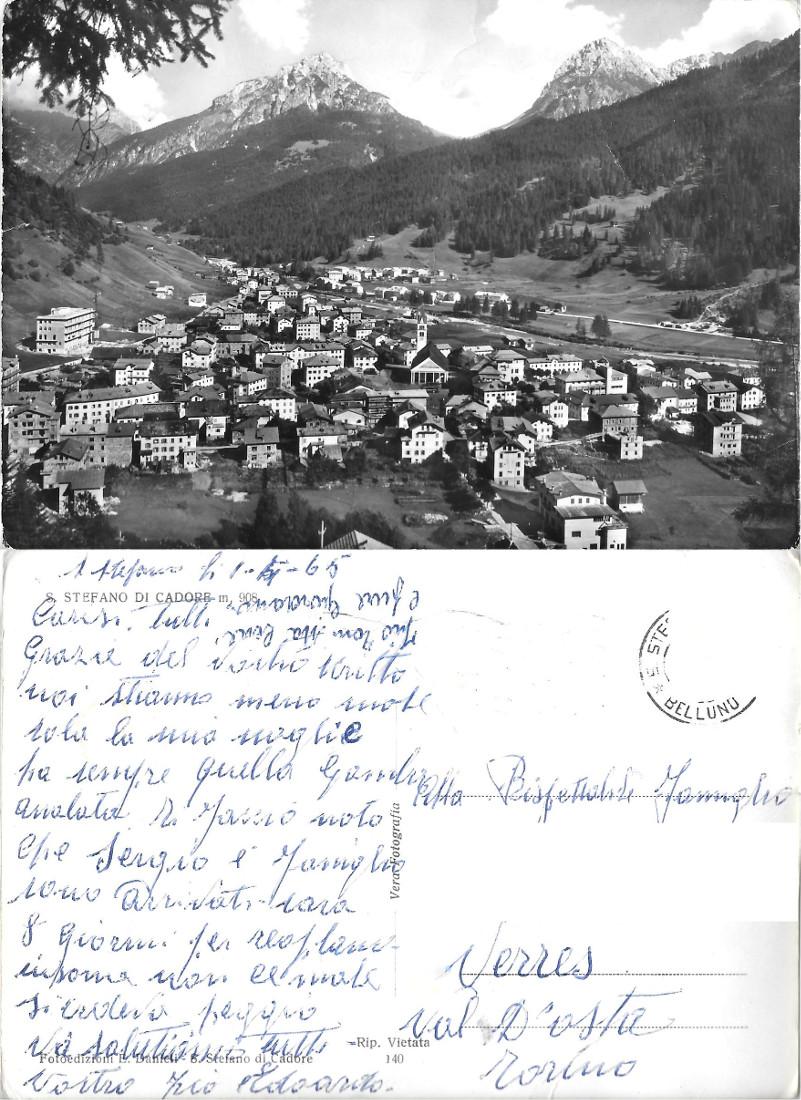 S Stefano li 1-XI-65
S. STEFANO DI CADORE m. 908
Carisi. tutti
Grazie del Vostro scritto
noi stiamo meno male
sola la mia moglie
ha sempre quella Gamba
amalata Vi faccio noto
che Sergio e famiglia
sono Arrivati sara
8 Giorni per reoplano
insoma non ce male
si credeva peggio
Vi salutiamo tutti
Vostro Zio Edoardo.
Fotoedizioni E. Danieli - S. Stefano di Cadore
Vera Fotografia
Rip. Vietata
140
STEF
BELLUNO
Alla Rispettabile Famiglia
Verres
Val D'osta
Torino